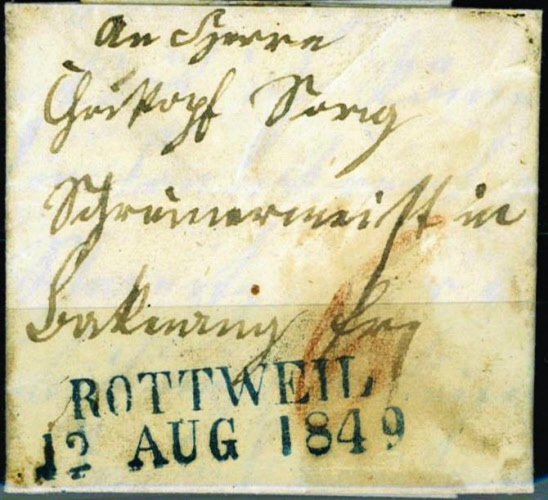 An Herrn
Christopf Sorig
Schreinermeister in
Baknang frei
ROTTWEIL
12 AUG 1849